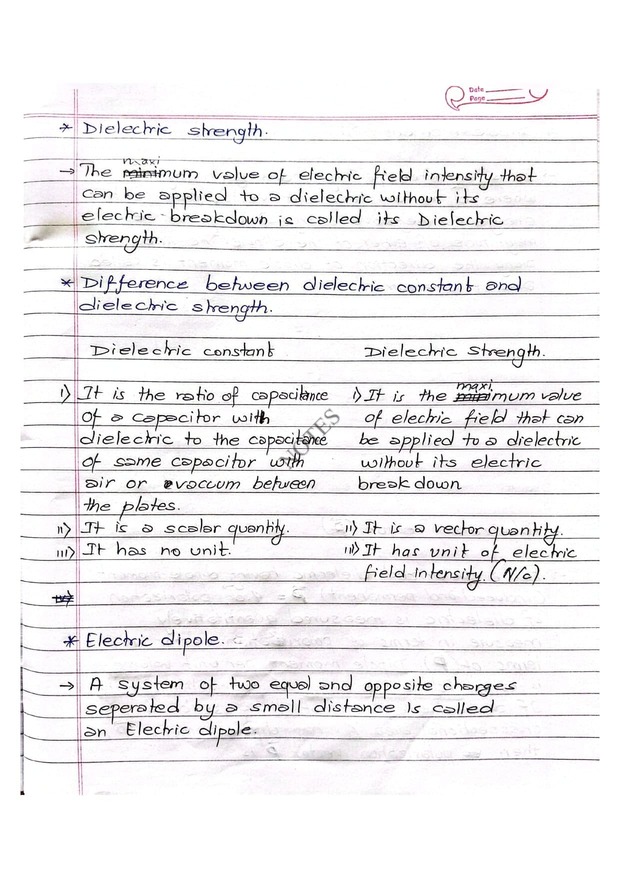 Date
Page
* Dielectric strength.
→ The maximum value of electric field intensity that
can be applied to a dielectric without its
electric breakdown is called its Dielectric
strength.
* Difference between dielectric constant and
dielectric strength.
Dielectric constant
i) It is the ratio of capacitance
of a capacitor with
dielectric to the capacitance
of same capacitor with
air or vaccum between
the plates.
ii) It is a scalar quantity.
iii) It has no unit.
Dielectric Strength.
i) It is the maximum value
of electric field that can
be applied to a dielectric
without its electric
breakdown
ii) It is a vector quantity.
iii) It has unit of electric
field intensity. (N/C).
NOTES
* Electric dipole.
→ A system of two equal and opposite charges
seperated by a small distance is called
an Electric dipole.